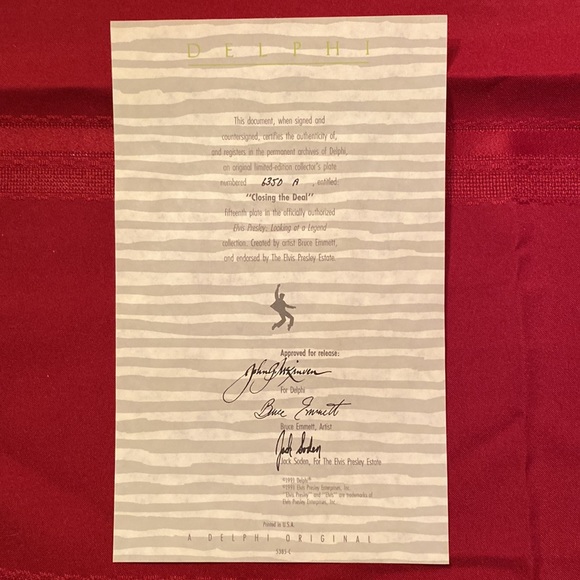 DELPHI
This document, when signed and
countersigned, certifies the authenticity of,
and registers in the permanent archives of Delphi,
an original limited-edition collector's plate
numbered 6350 A , entitled:
"Closing the Deal"
fifteenth plate in the officially authorized
Elvis Presley: Looking at a Legend
collection. Created by artist Bruce Emmett,
and endorsed by The Elvis Presley Estate.
Approved for release:
For Delphi
Bruce Emmett
Bruce Emmett, Artist
Jack Soden
Jack Soden, For The Elvis Presley Estate
©1991 Delphi®
Elvis Presley Enterprises, Inc.
"Elvis Presley" and "Elvis" are trademarks of
Elvis Presley Enterprises, Inc.
Printed in U.S.A.
A DELPHI ORIGINAL
5385-C